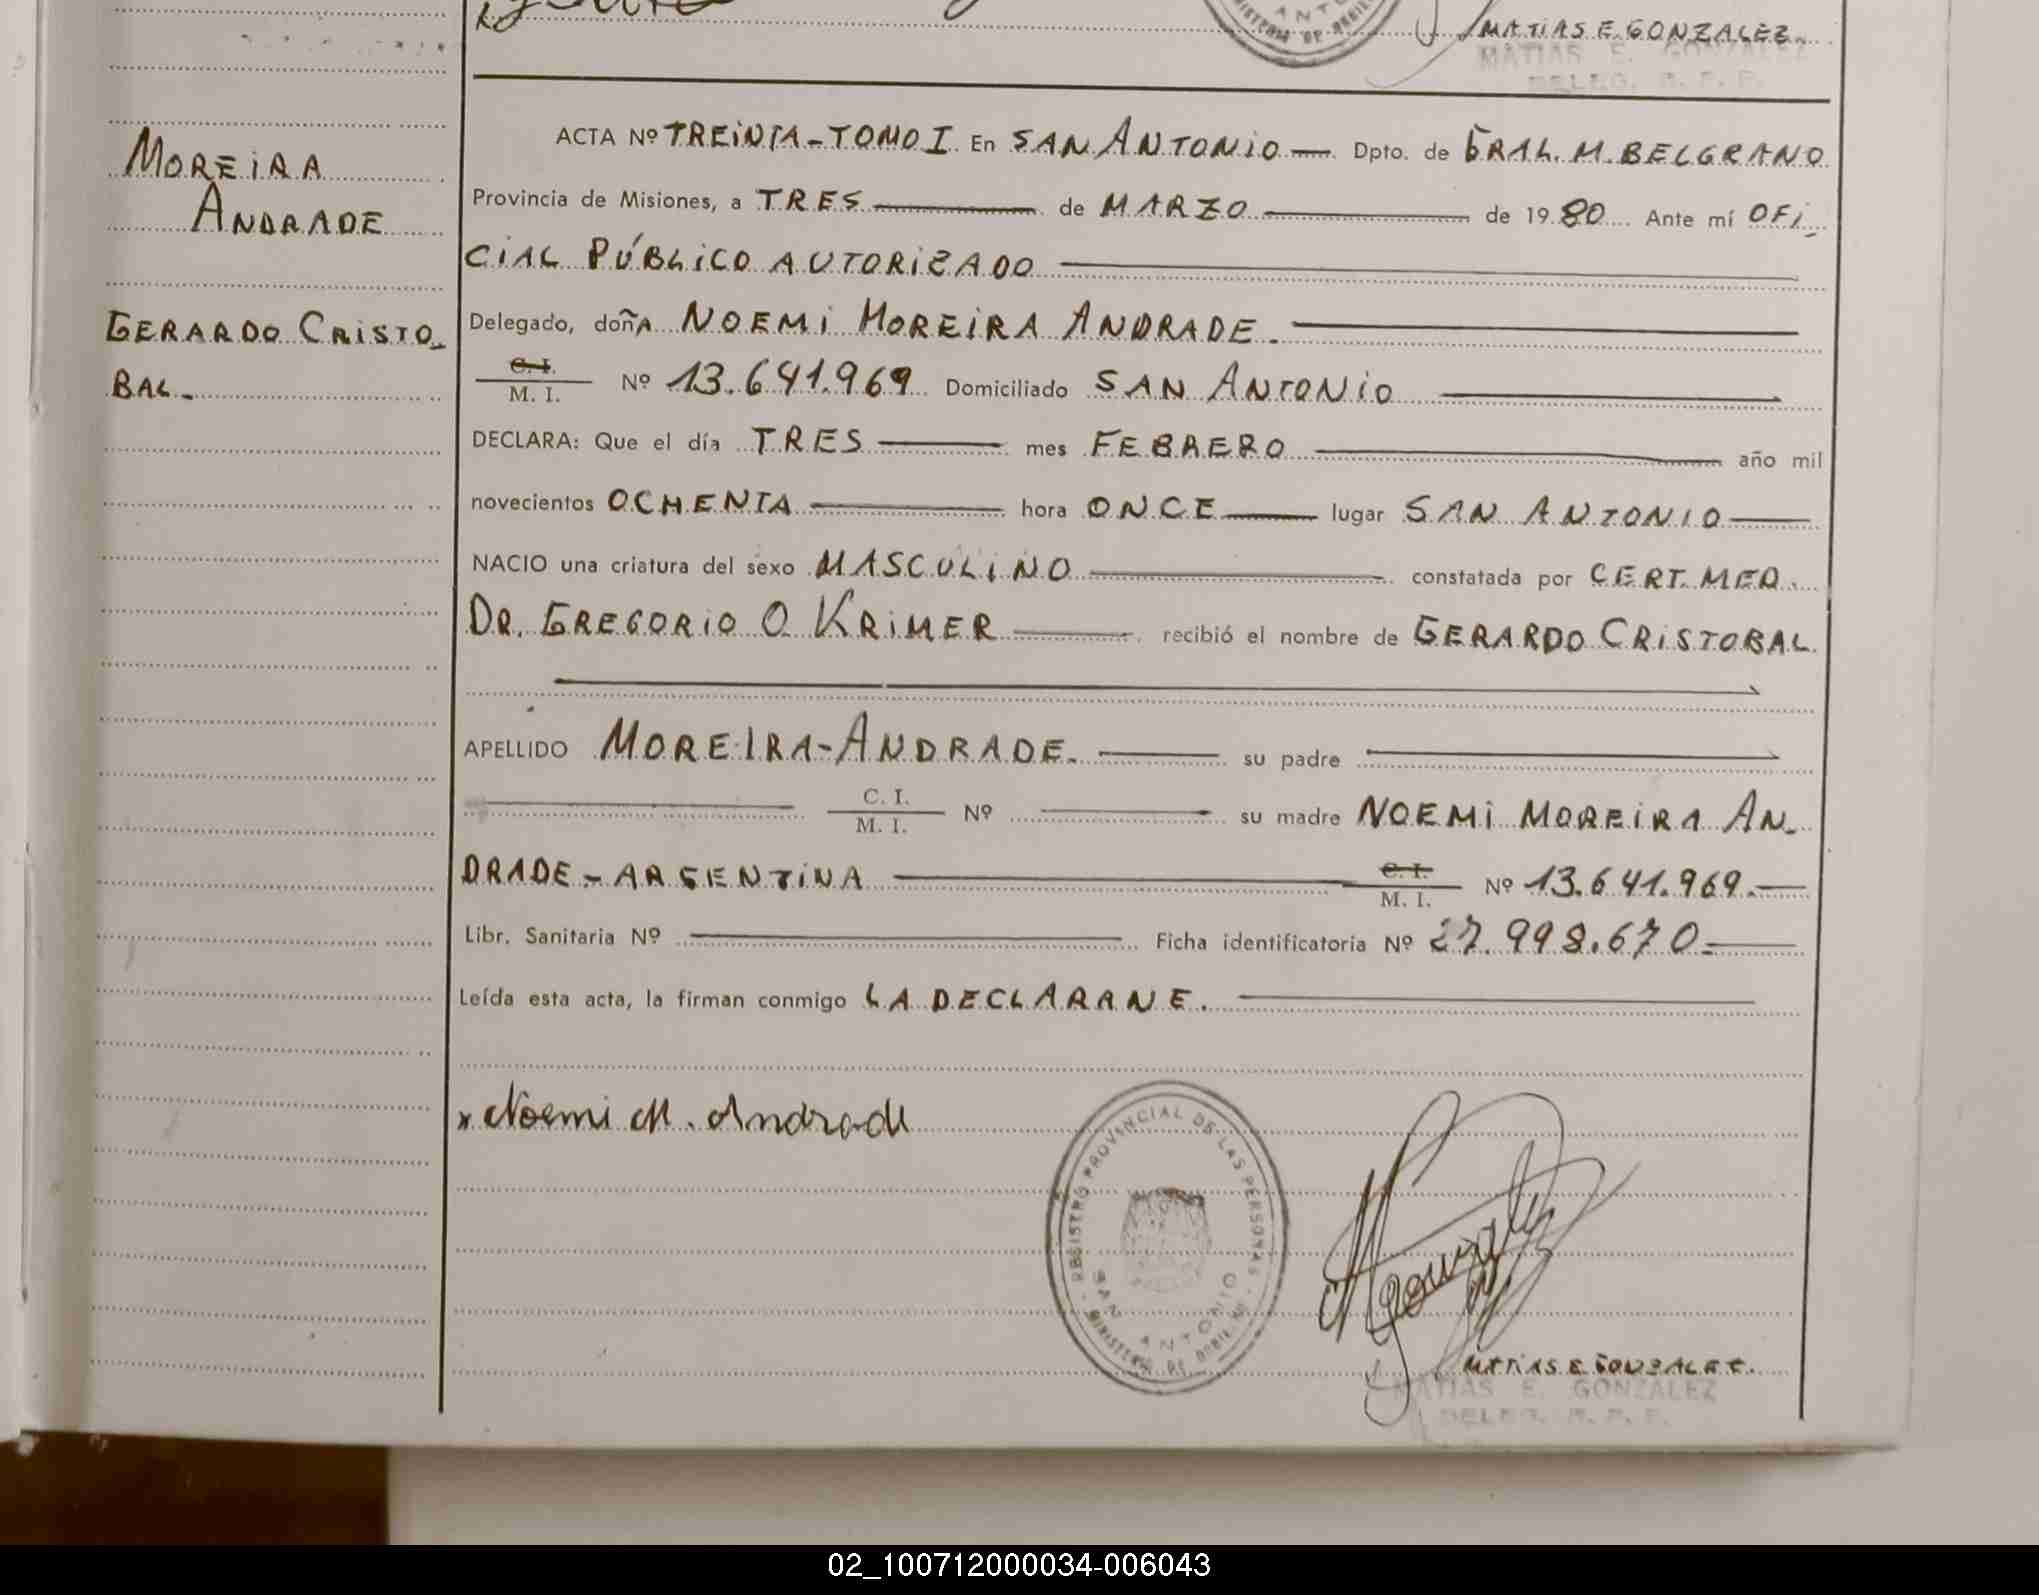 MATIAS E. GONZALEZ.
MATIAS E. GONZALEZ
DELEG. R. P. P.
MOREIRA
ANDRADE
GERARDO CRISTO-
BAL.-
ACTA Nº TREINTA-TOMO I. En SAN ANTONIO — Dpto. de GRAL. M. BELGRANO
Provincia de Misiones, a TRES — de MARZO — de 1980 Ante mí OFI-
CIAL PÚBLICO AUTORIZADO —
Delegado, doñA NOEMI MOREIRA ANDRADE. —
C. I.
M. I. Nº 13.641.969 Domiciliado SAN ANTONIO —
DECLARA: Que el día TRES — mes FEBRERO — año mil
novecientos OCHENTA — hora ONCE — lugar SAN ANTONIO —
NACIO una criatura del sexo MASCULINO — constatada por CERT. MED.
DR. GREGORIO O. KRIMER — recibió el nombre de GERARDO CRISTOBAL
APELLIDO MOREIRA-ANDRADE. — su padre —
C. I.
M. I. Nº — su madre NOEMI MOREIRA AN-
DRADE-ARGENTINA — C. I.
M. I. Nº 13.641.969.—
Libr. Sanitaria Nº — Ficha identificatoria Nº 27.998.670=
Leída esta acta, la firman conmigo LA DECLARANE. —
x Noemi M. Andrade
REGISTRO PROVINCIAL DE LAS PERSONAS
SAN ANTONIO
MINISTERIO DE GOBIERNO
MATIAS E. GONZALEZ.
MATIAS E. GONZALEZ
DELEG. R. P. P.
02_100712000034-006043